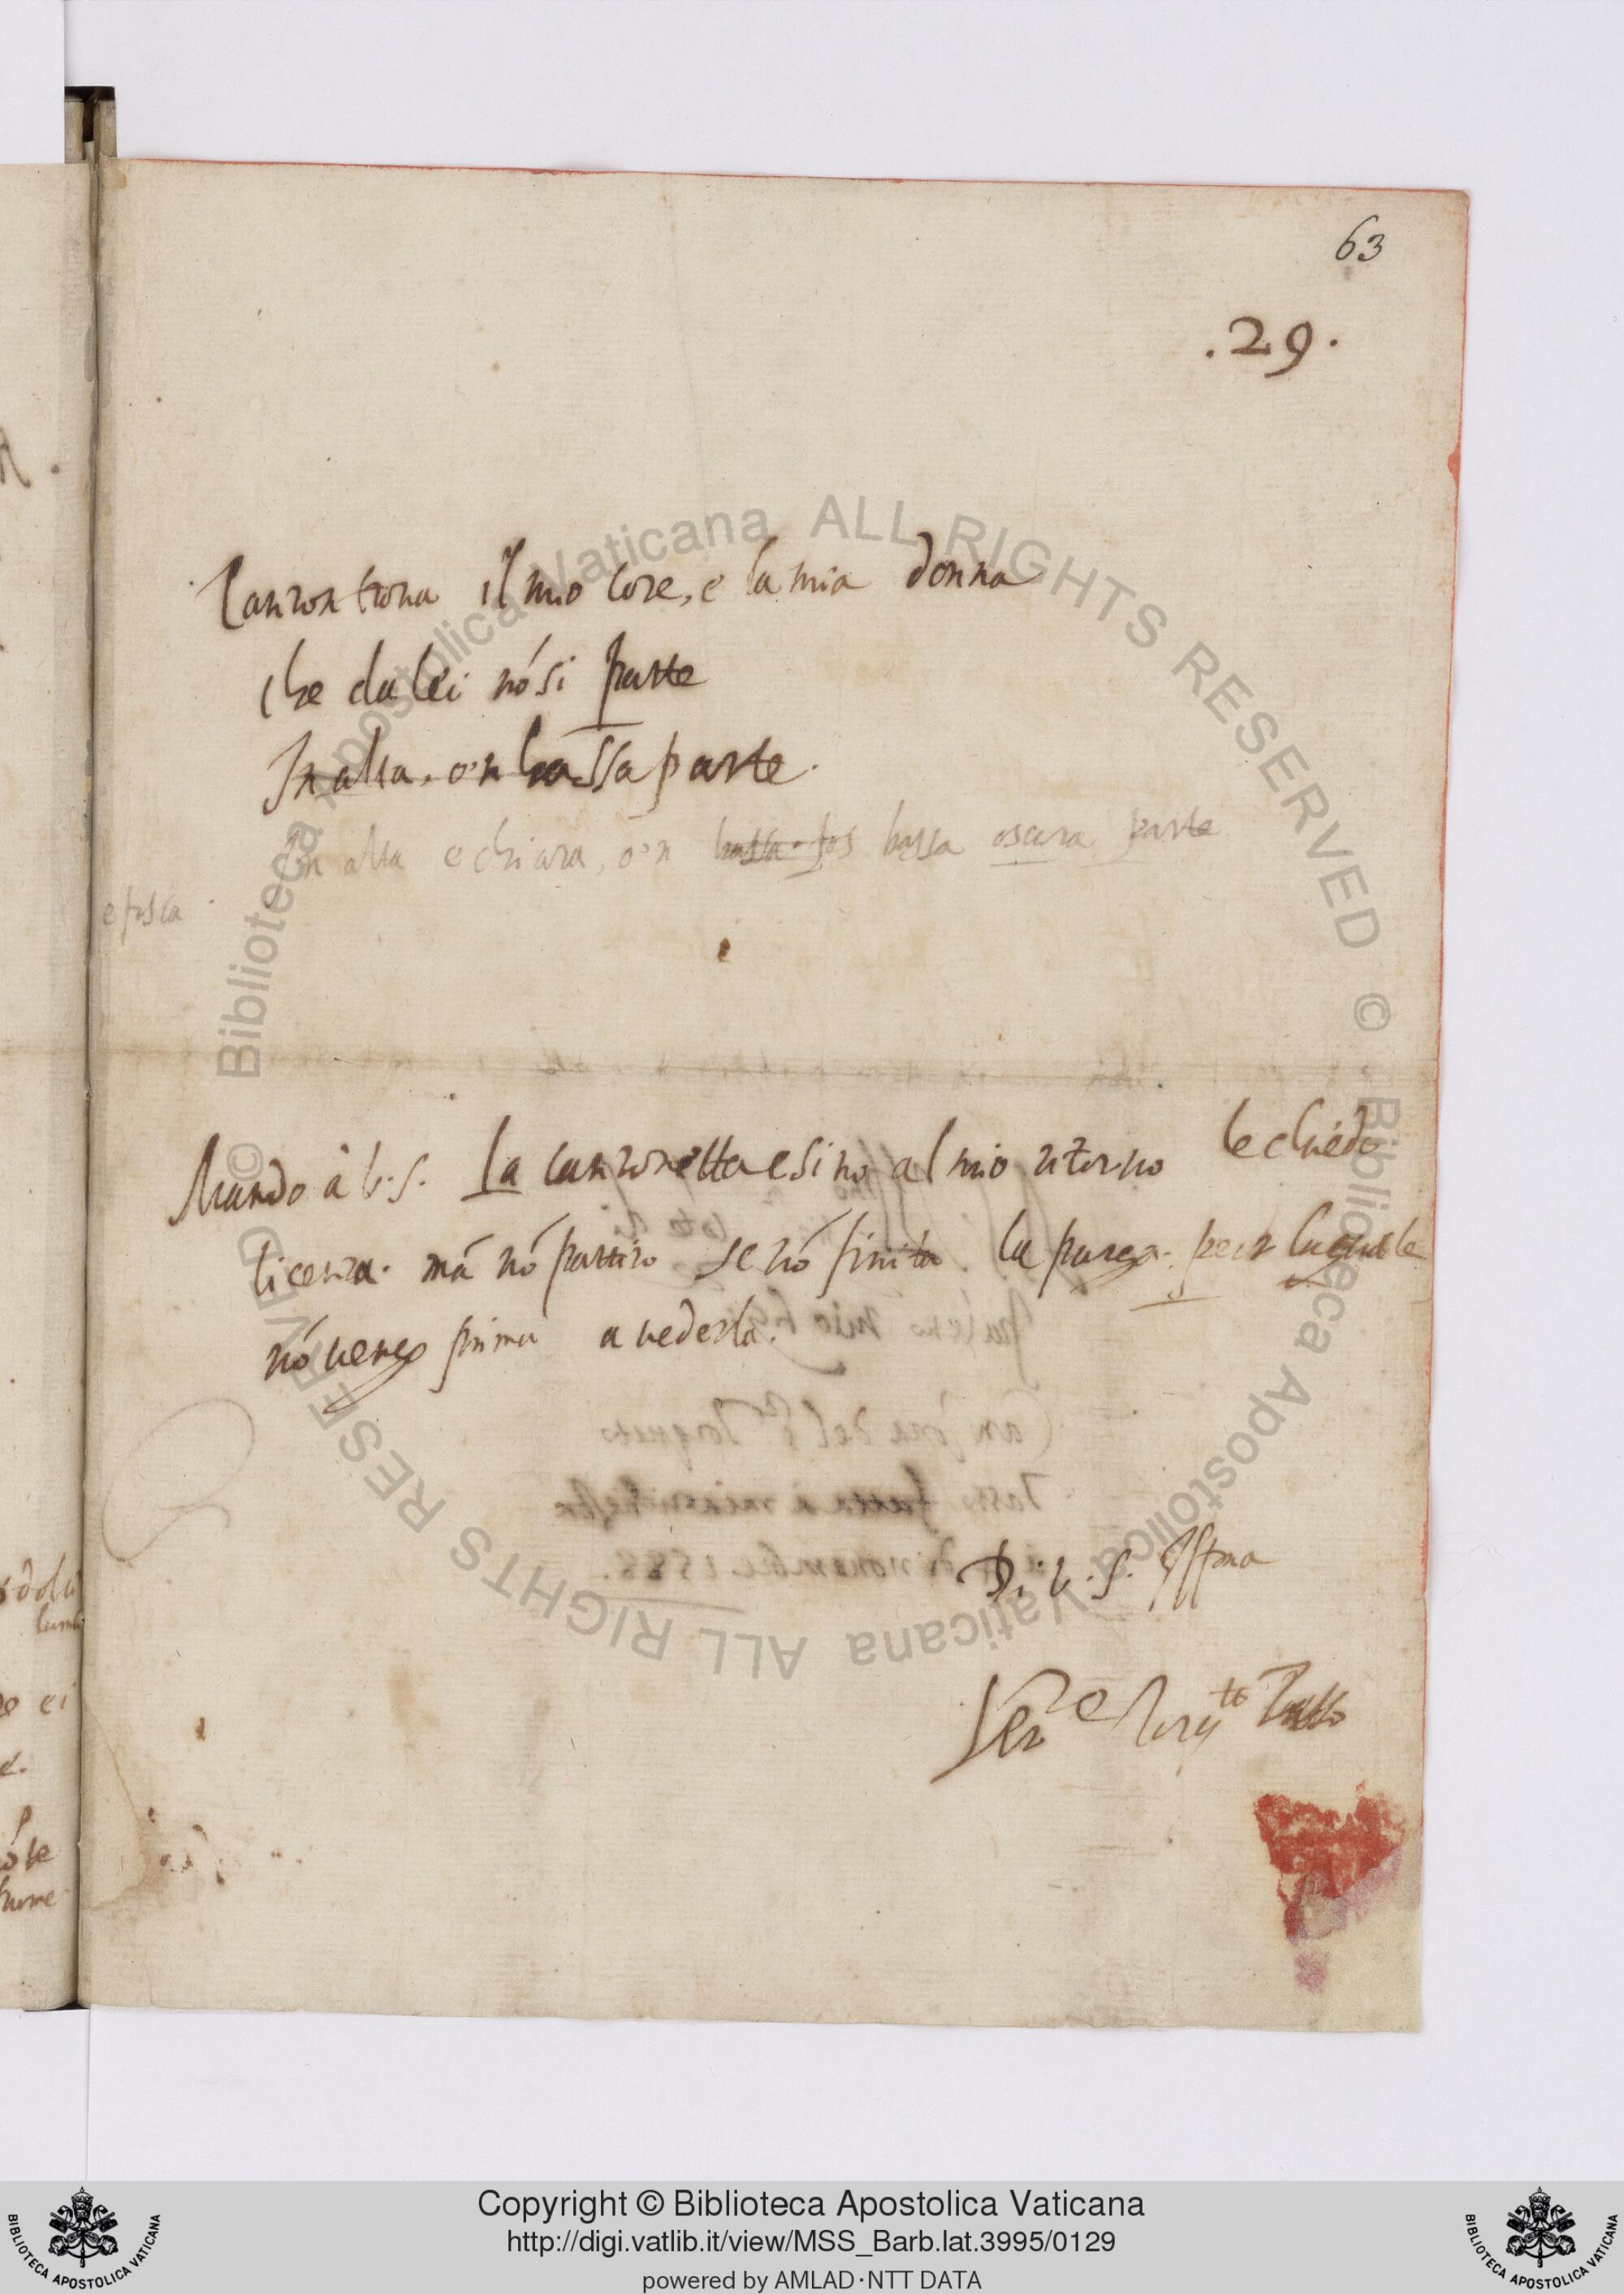 63
.29.
Canzon trova il mio core, e la mia donna
che da lei nó si parte
In alta, o'n bassa parte.
In alta e chiara, o'n bassa fos bassa oscura parte
e fosca
Mando à V.S. la canzonetta e sino al mio ritorno le chiedo
licenza. mà nó partirò se nó finita la purga. per la quale
nó vengo prima a vederla.
Di V.S. Ill.ma
Ser.re Torq.to Tasso
Copyright © Biblioteca Apostolica Vaticana
http://digi.vatlib.it/view/MSS_Barb.lat.3995/0129
powered by AMLAD·NTT DATA
© Biblioteca Apostolica Vaticana ALL RIGHTS RESERVED
© Biblioteca Apostolica Vaticana ALL RIGHTS RESERVED
BIBLIOTECA APOSTOLICA VATICANA
BIBLIOTECA APOSTOLICA VATICANA